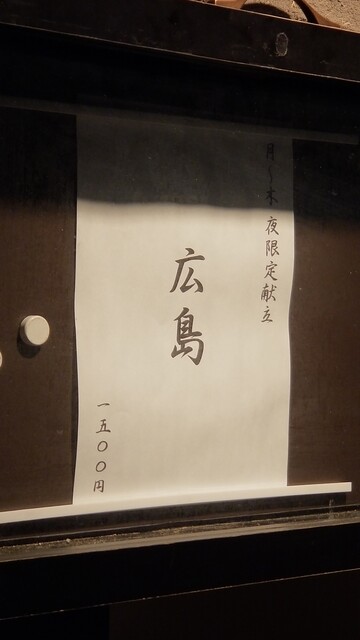 月〜木 夜限定献立
広島
一五〇〇円